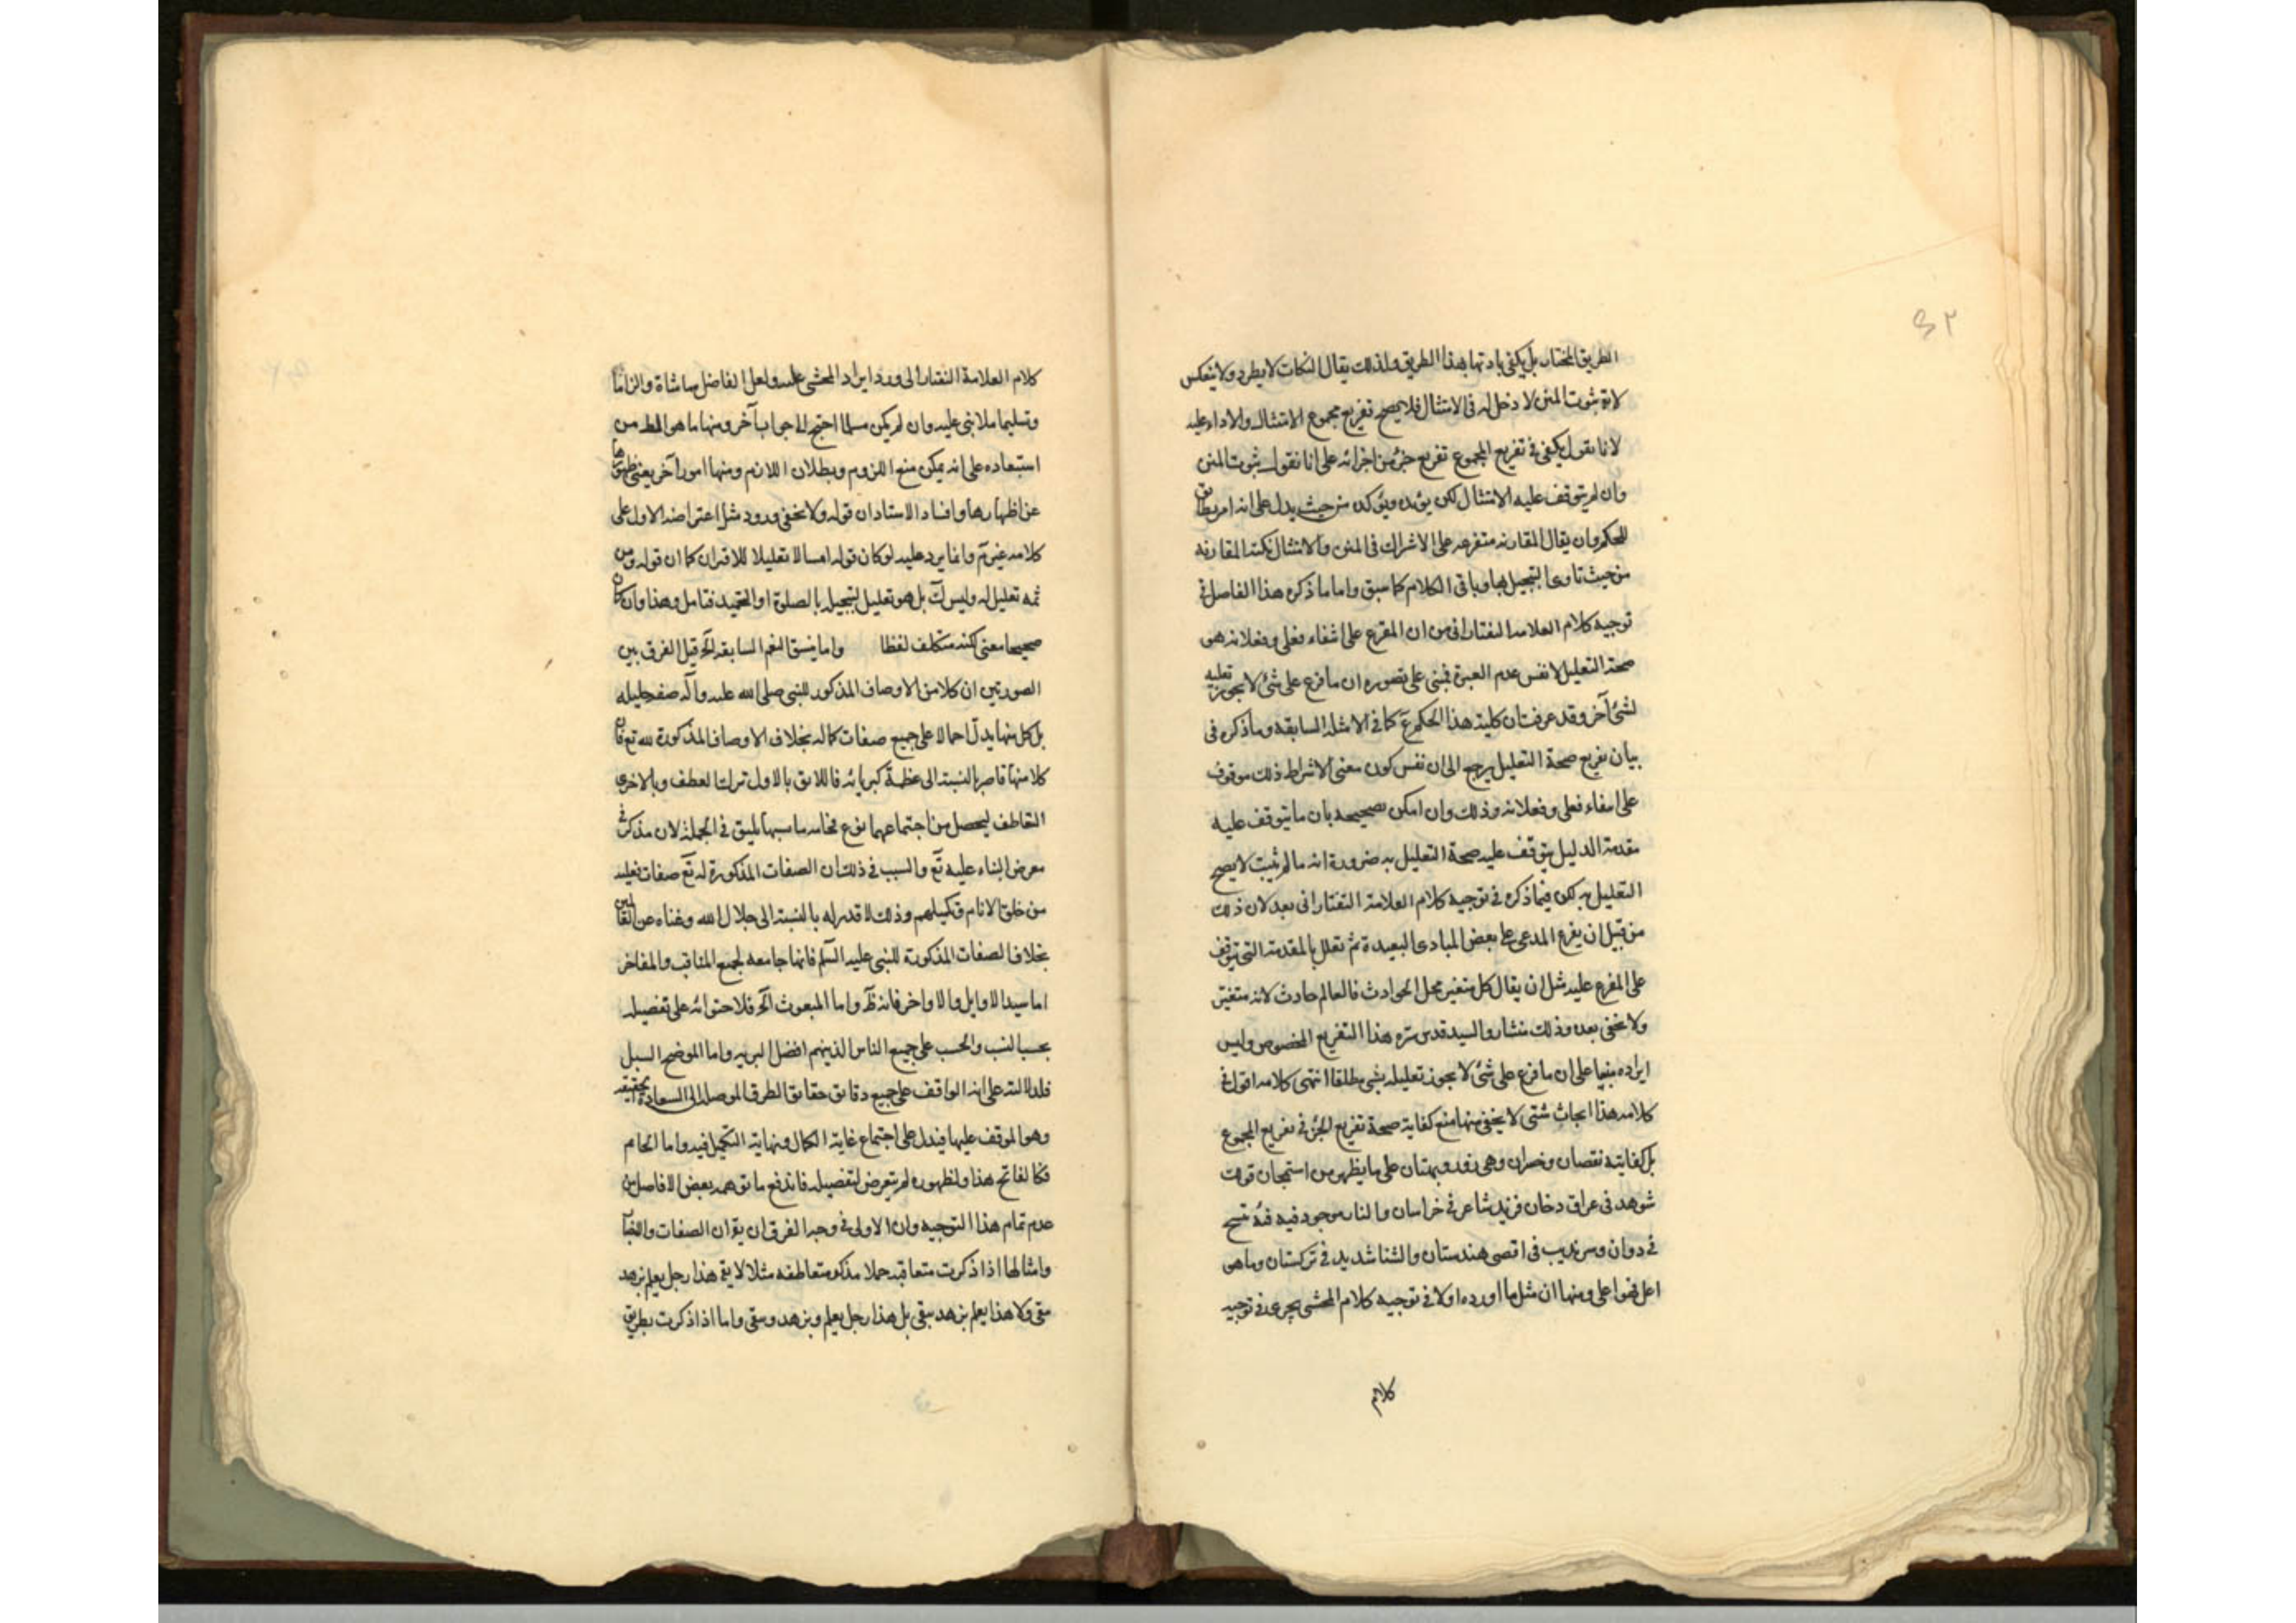 ٤٢
الطريق المختار بل يكفي باديها بهذا الطريق ولذلك يقال النكات لا يطرد ولا ينعكس
لان ثبوت المنن لا دخل له في الامتثال فلا يصح تفريع مجموع الامتثال والاداء عليه
لانا نقول يكفي في تفريع المجموع تفريع جزء من اجزائه على انا نقول ثبوت المنن
وان لم يتوقف عليه الامتثال لكن يؤيده ويؤكده من حيث يدل على انه امر مطابق
للحكم وان يقال المقارنه متفرعه على الاشراك في المنن والامتثال نكتة المقارنه
من حيث تاوى التبجيل بها وباقي الكلام كما سبق واما ما ذكره هذا الفاضل في
توجيه كلام العلامة التفتازاني من ان المفرع على انتفاء فعلى وفعلانه هو
صحة التعليل لا نفس عدم العبرة فمبنى على تصوره ان ما فرع على شئ لا يجوز تعليله
لشئ آخر وقد عرفت ان كلية هذا الحكم ع كما في الامثلة السابقه وما ذكره في
بيان تفريع صحة التعليل يرجع الى ان نفس كون معنى الاشراط ذلك موقوف
على انتفاء فعلى وفعلانه وذلك وان امكن تصحيحه بان ما يتوقف عليه
مقدمة الدليل يتوقف عليه صحة التعليل به ضرورة انه ما لم يثبت لا يصح
التعليل به لكن فيما ذكره في توجيه كلام العلامة التفتازاني بعد لان ذلك
من قبيل ان يفرع المدعى على بعض المبادى البعيدة ثم تعلل بالمقدمة التي تتوقف
على المفرع عليه مثل ان يقال كل متغير محل الحوادث فالعالم حادث لانه متغير
ولا يخفى بعده وذلك منشا رد السيد قدس سره هذا التفريع المخصوص وليس
ايراده مبنيا على ان ما فرع على شئ لا يجوز تعليله بشي مطلقا انتهى كلامه اقول في
كلامه هذا ابحاث شتى لا يخفى منها منع كفاية صحة تفريع الجزء في تفريع المجموع
بل كفايته نقصان وخسران وهي زور وبهتان على ما يظهر من استهجان قولك
شوهد في عراق دخان فزيد شاعر في خراسان والنار موجود فيه فئة تسبح
في دوان وسرنديب في اقصى هندستان والشتا شديد في تركستان وما هي
اعل فضوا على ومنها ان مثل ما اورده اولا في توجيه كلام المحشى يجرى في توجيه
كلام
كلام العلامة التفتازاني ورد ايراد المحشى عليه ولعل الفاضل مماشاة والزاما
وتسليما ملا بنى عليه وان لم يكن مسلما احتج الى جواب آخر ومنها ما هى المط من
استبعاده على انه يمكن منع اللزوم وبطلان اللازم ومنها امور آخر يغنى ظهورها
عن اظهارها وافساد الاستاد ان قوله ولا يخفى ورود مثل اعتراضه الاول على
كلامه غير تم وانما يرد عليه لو كان قوله امسالا تعليلا للاقتران كما ان قوله ومن
ثمه تعليل له وليس كك بل هو تعليل لتبجيله بالصلوة او التحميد فتامل وهذا وان كان
صحيحا معنى لكنه متكلف لفظا واما ينسق النغم السابقه الخ قيل الفرق بين
الصورتين ان كلا من الاوصاف المذكور للنبي صلى الله عليه وآله صفة جليله
بل كل منها يدل اجمالا على جميع صفات كماله بخلاف الاوصاف المذكورة لله تع فان
كلا منها قاصر بالنسبة الى عظمة كبريائه فاللائق بالاول ترك العطف وبالاخرى
التعاطف ليحصل من اجتماعهما نوع فخامه ما سبها يليق في الجملة لان مذكر في
معرض الثناء عليه تع والسبب في ذلك ان الصفات المذكورة له تع صفات فعليه
من خلق الانام وتكميلهم وذلك لا قدر له بالنسبة الى جلال الله وغناه عن العالمين
بخلاف الصفات المذكورة للنبي عليه السلم فانها جامعه لجميع المناقب والمفاخر
اما سيد الاوايل والاواخر فانه ظ واما المبعوث الخ فلاحتوائه على تفضيله
بحسب النسب والحسب على جميع الناس الذين هم افضل البريه واما الموضح السبل
فلدلالته على انه الواقف على جميع دقائق حقائق الطرق الموصله الى السعادة الحقيقيه
وهو الموقف عليها فيدل على اجتماع غاية الكمال ونهاية التكميل فيه واما الخاتم
فكالفاتح هذا ولظهوره لم يتعرض لتفصيله فاندفع ما توهمه بعض الافاضل من
عدم تمام هذا التوجيه وان الاولى في وجه الفرق ان يق ان الصفات
وامثالها اذا ذكرت متعاقبه جملا مذكور متعاطفه مثلا لا يق هذا رجل يعلم يزهد
يتقى ولا هذا يعلم يزهد يتقى بل هذا رجل يعلم ويزهد ويتقى واما اذا ذكرت بطريق